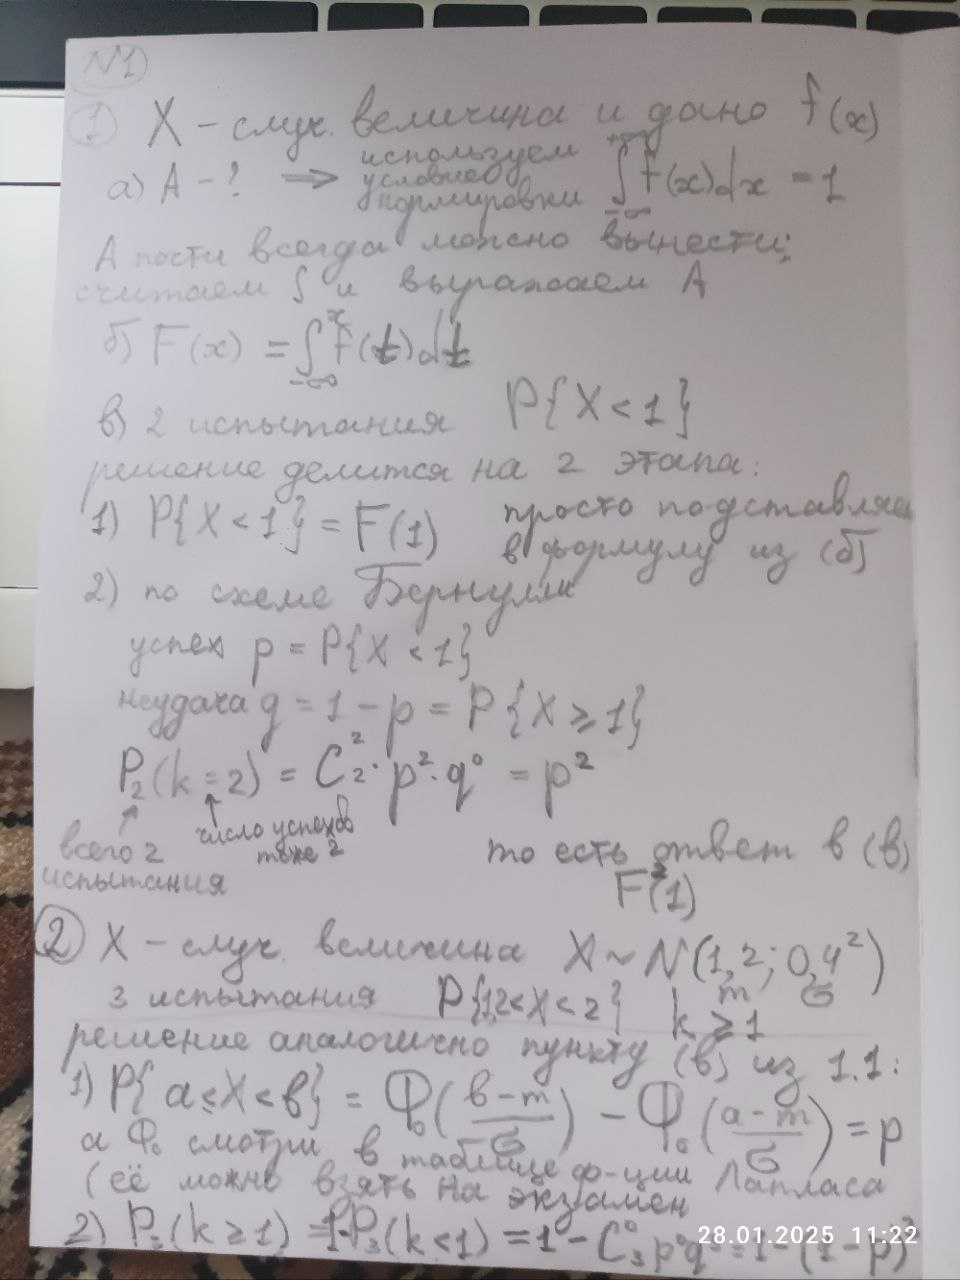 N1
1 X – случ. величина и дано f(x)
а) A – ? ⇒ используем условие нормировки ∫_{-∞}^{+∞} f(x)dx = 1
A почти всегда можно вынести;
считаем ∫ и выражаем A
б) F(x) = ∫_{-∞}^{x} f(t)dt
в) 2 испытания P{X < 1}
решение делится на 2 этапа:
1) P{X < 1} = F(1) просто подставляе
в формулу из (б)
2) по схеме Бернулли
успех p = P{X < 1}
неудача q = 1 – p = P{X ⩾ 1}
P₂(k = 2) = C₂² · p² · q⁰ = p²
всего 2 испытания
число успехов тоже 2
то есть ответ в (в)
F²(1)
2 X – случ. величина X ~ N(1,2; 0,4²)
m σ
3 испытания P{1,2 < X < 2} k ⩾ 1
решение аналогично пункту (в) из 1.1:
1) P{a ≤ X < в} = Ф₀((в – m)/σ) – Ф₀((a – m)/σ) = p
а Ф₀ смотри в таблице ф-ции Лапласа
(её можно взять на экзамен
2) P₃(k ≥ 1) = 1-P₃(k < 1) = 1 – C₃⁰ p⁰q³ = 1 – (1 – p)³
28.01.2025 11:22